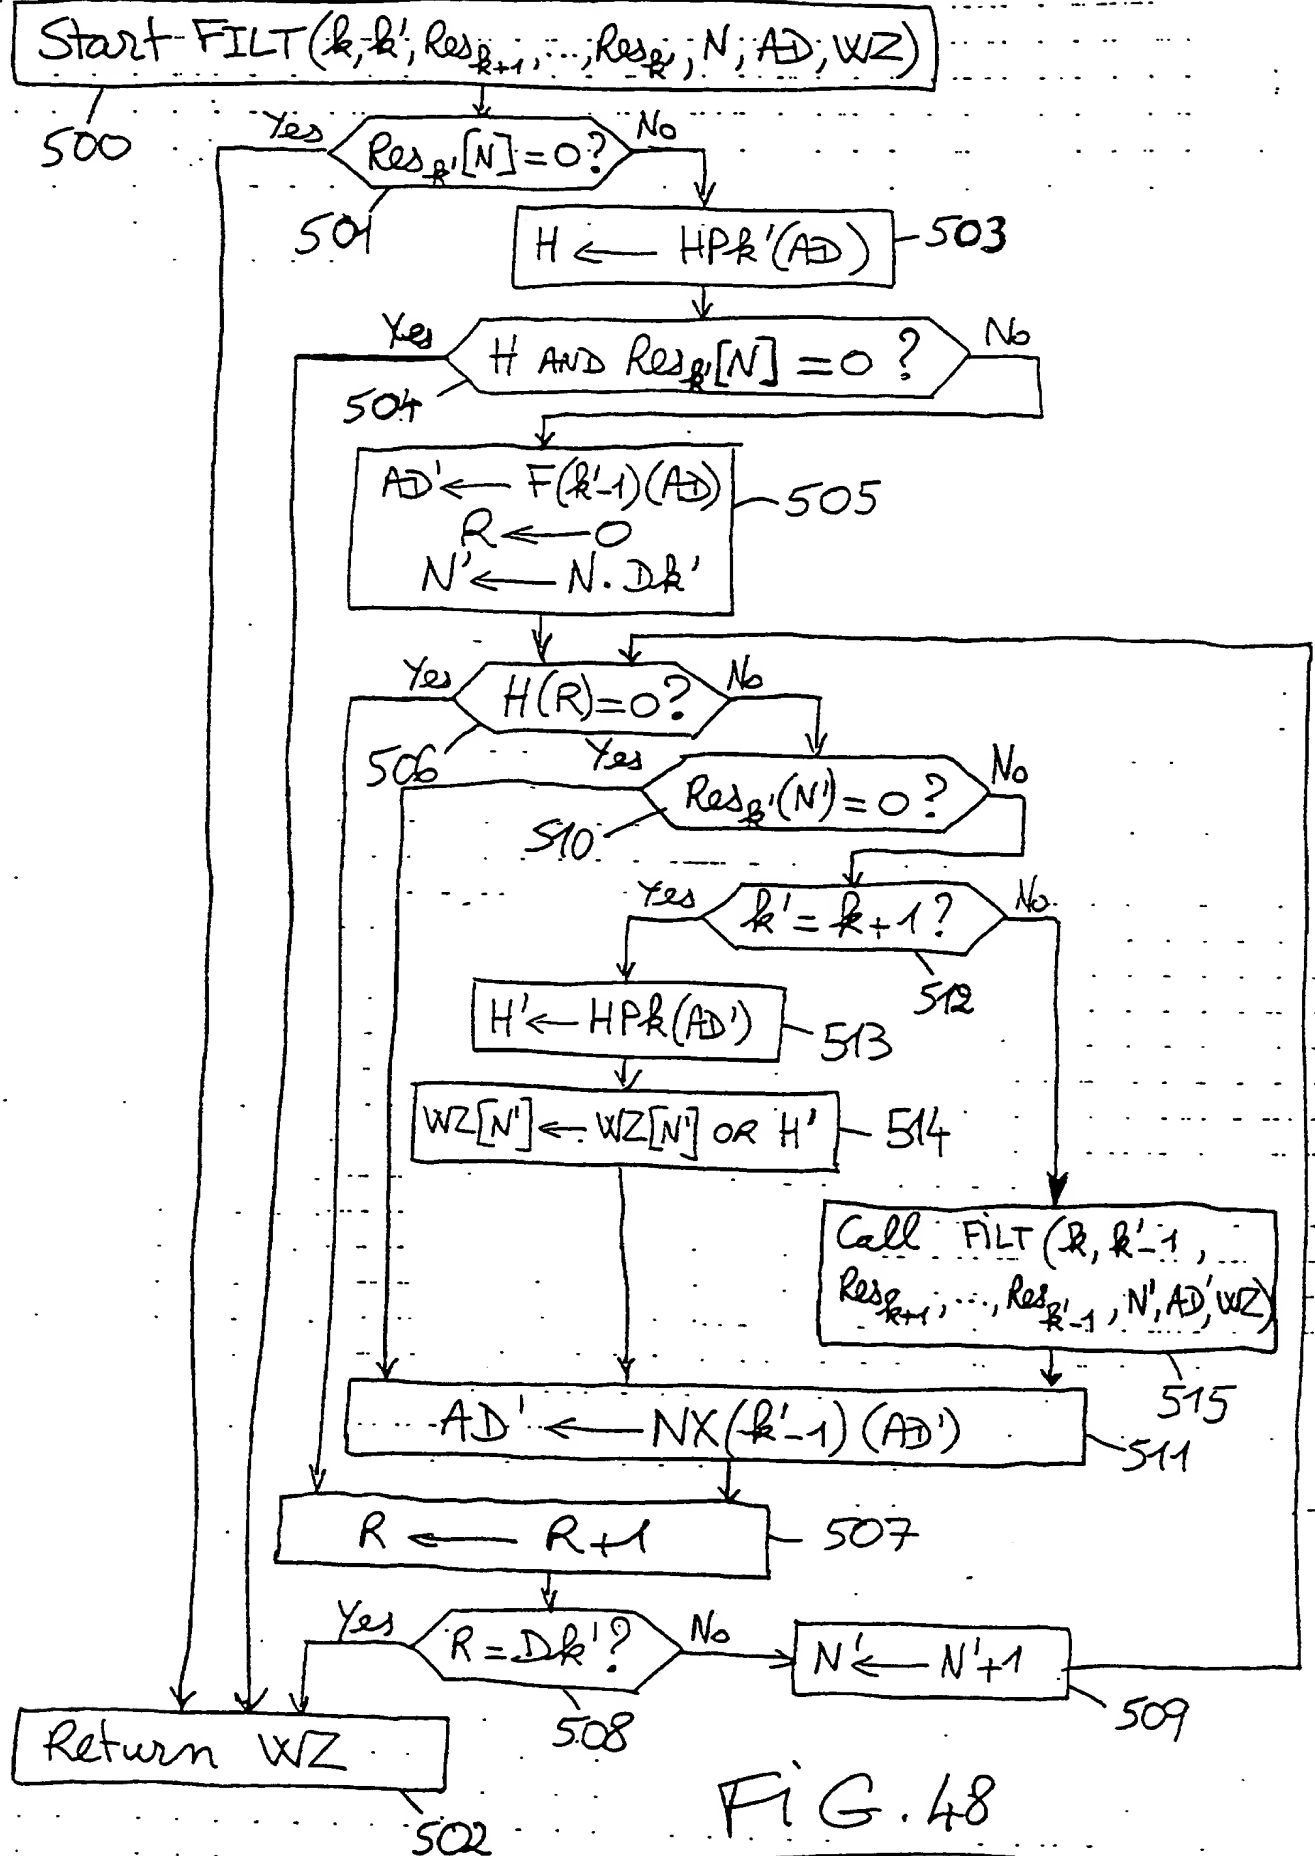 Start FILT(k,k',Res_{k+1},...,Res_{k'},N,AD,WZ)
500
Yes
Res_{k'}[N]=0?
No
501
H ← HPk'(AD)
503
Yes
H AND Res_{k'}[N] = 0 ?
No
504
AD' ← F(k'-1)(AD)
R ← 0
N' ← N. Dk'
505
Yes
H(R)=0?
No
506
Yes
Res_{k'}(N')=0?
No
510
Yes
k'=k+1?
No
512
H' ← HPk(AD')
513
WZ[N'] ← WZ[N'] OR H'
514
Call FILT (k, k'-1,
Res_{k+1},...,Res_{k'-1},N',AD',WZ)
515
AD' ← NX(k'-1)(AD')
511
R ← R+1
507
Yes
R=Dk'?
No
508
N' ← N'+1
509
Return WZ
502
FIG.48